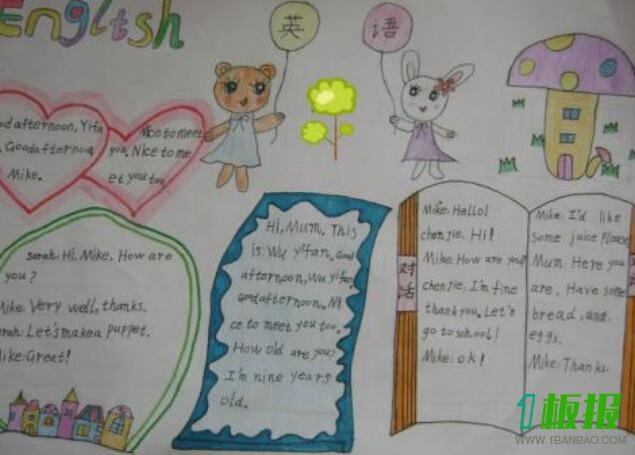 English
英
语
od afternoon, Yifa
. Good afternoon,
Mike.
Nice to meet
you. Nice to me
et you too.
Sarah: Hi, Mike, How are
you?
Mike: Very well, thanks.
arah: Let's make a puppet.
Mike: Great!
Hi, Mum. This
is Wu Yifan. Good
afternoon, Wu Yifan.
Good afternoon. Ni
ce to meet you too.
How old are you?
I'm nine years
old.
对话
Mike: Hello!
chenjie: Hi!
Mike: How are you?
chenjie: I'm fine
thank you. Let's
go to school!
Mike: ok!
Mike: I'd like
some juice Please
Mum: Here you
are. Have some
bread, and
eggs.
Mike: Thanks.
1板报
WWW.1BANBAO.COM